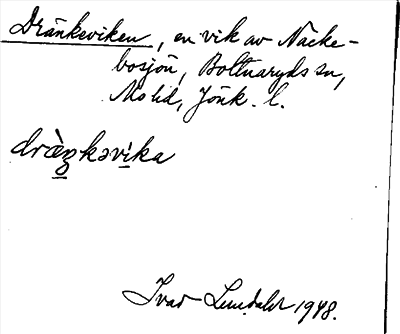 Dränkeviken, en vik av Näcke-
bosjön, Bottnaryds sn,
Mo hd, Jönk. l.
dràŋkəvika
Ivar Lundahl 1948.